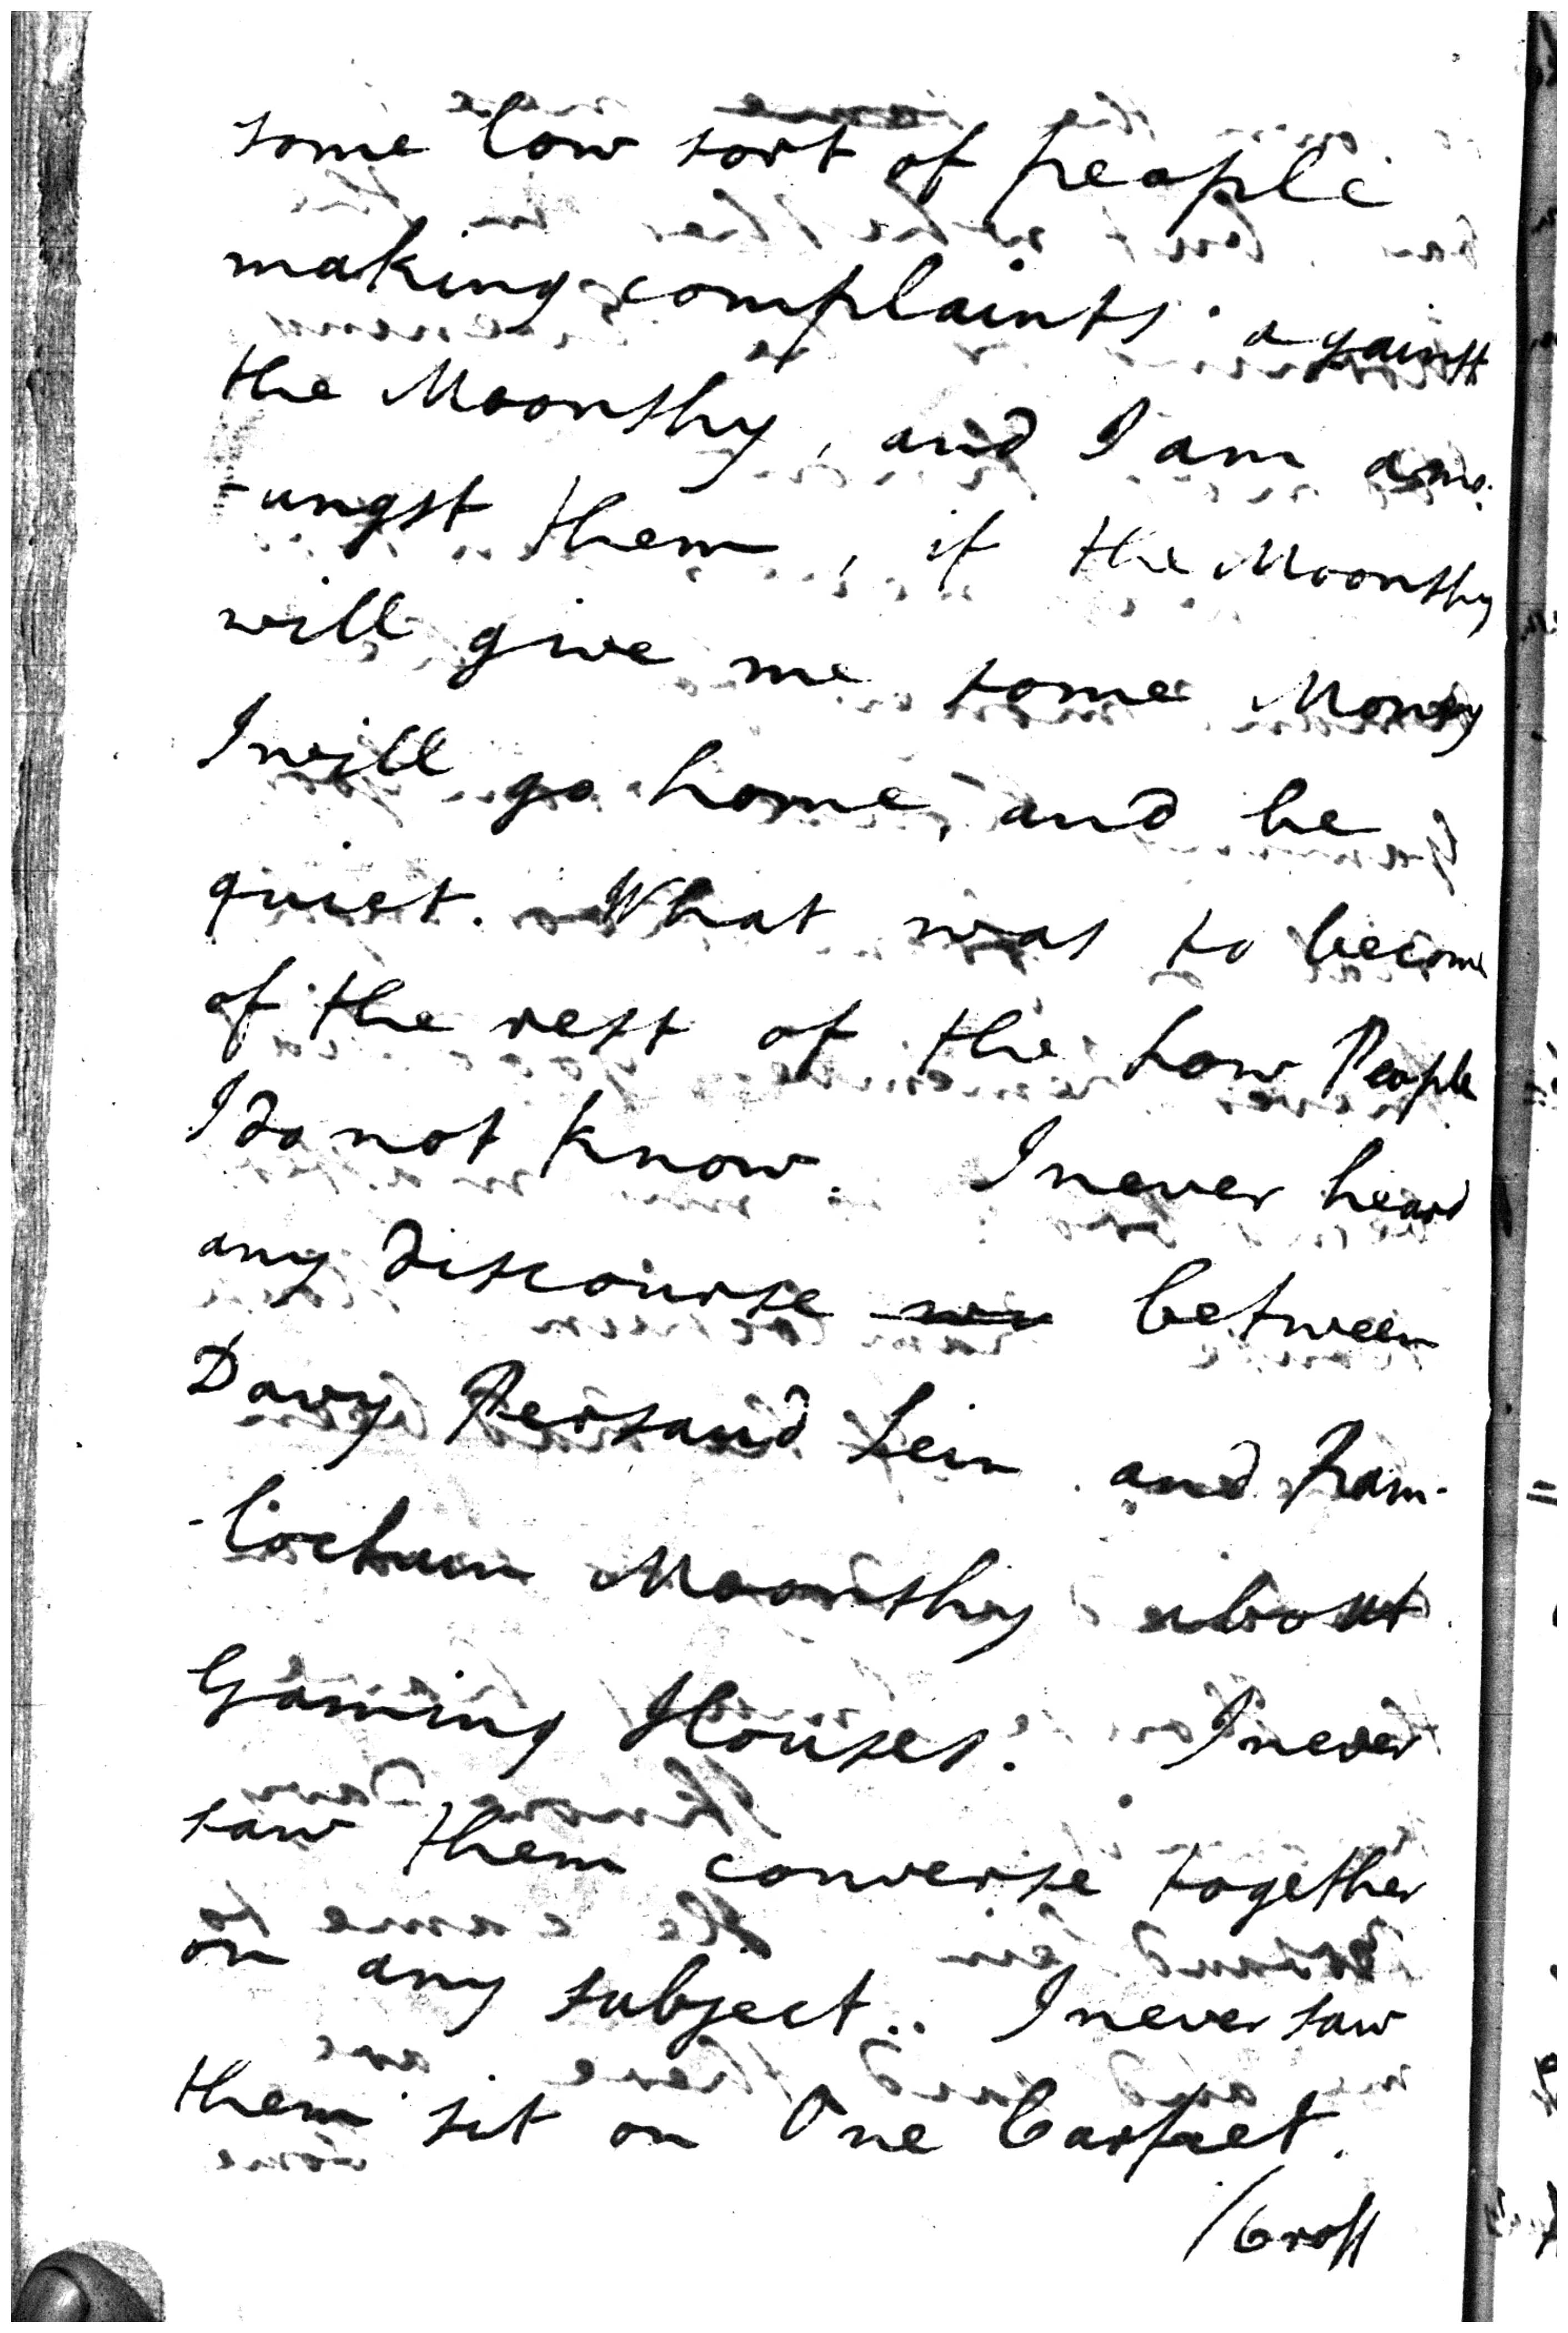 some low sort of people
making complaints against
the Moonshy, and I am amo-
-ungst them, if the Moonshy
will give me some Money
I will go home, and be
quiet. What was to become
of the rest of the Low People
I do not know. I never heard
any discourse between
Davy Persaud Sein and Ram-
-lochun Moonshy about
Gaming Houses. I never
saw them converse together
on any subject.. I never saw
them sit on One Carpet.
/Cross